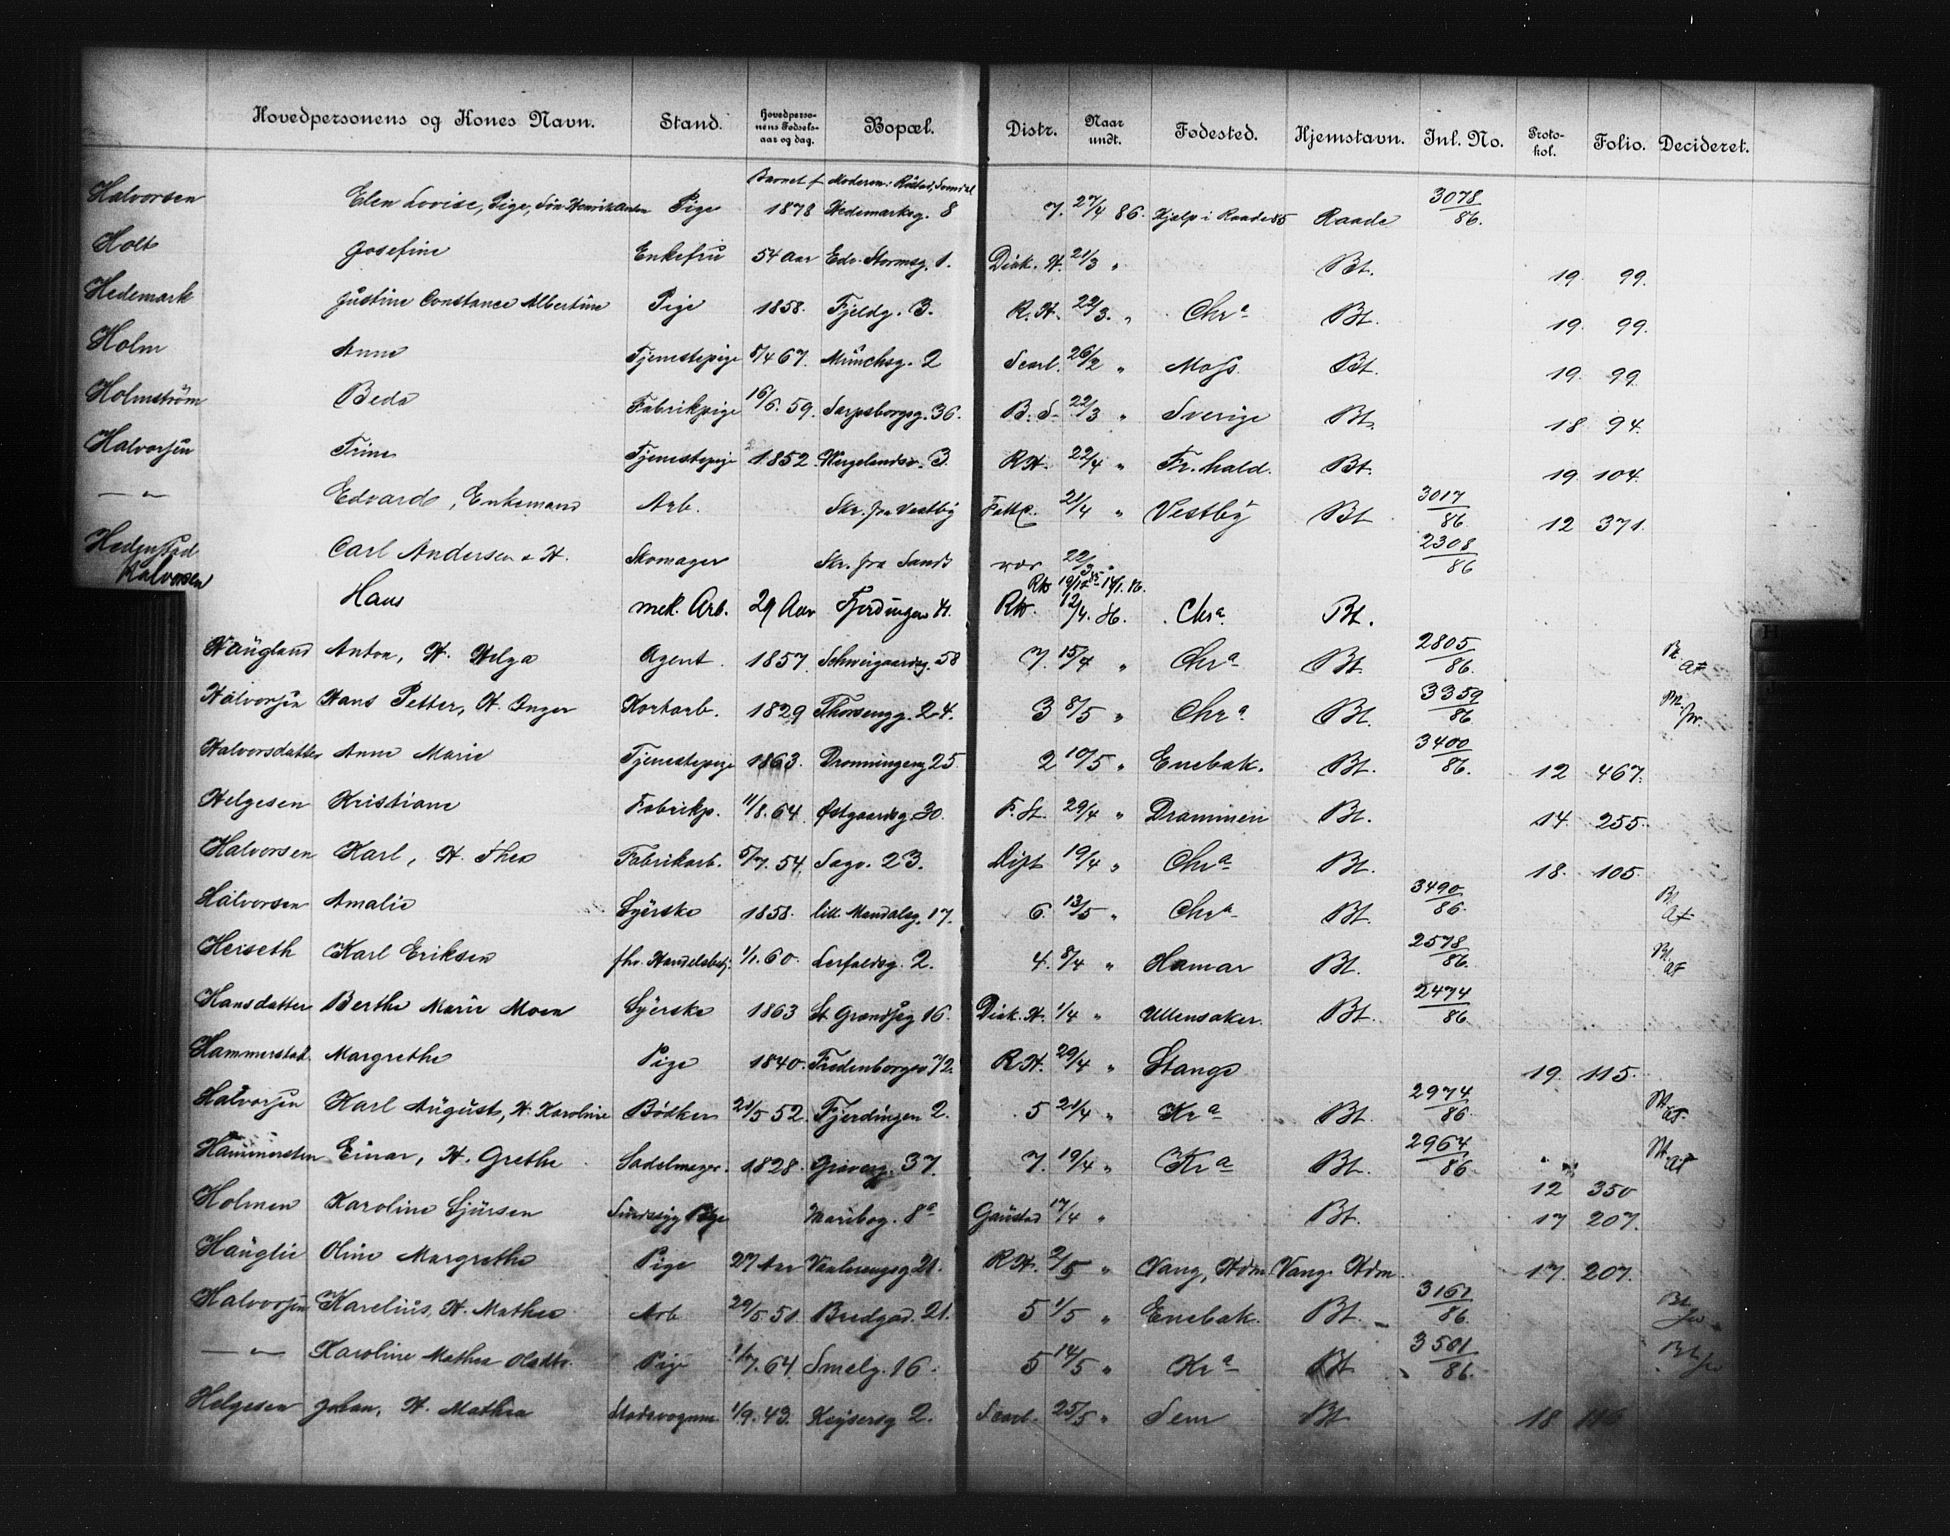 Hovedpersonens og Kones Navn. Stand. Hovedperso-nens Fødsels-aar og dag. Bopæl. Distr. Naar undt. Fødested. Hjemstavn. Inl. No. Proto-kol. Folio. Decideret.
Barnet f Moderen:
Halvorsen Elen Lovise, Pige, Søn Henrik Anton Pige 1878 Hedemarksg. 8 7. 27/4 86. Hjælp i Raade 85 Raade 3078/86.
Holt Josefine Enkefru 54 Aar Edv. Stormsg. 1. Diak. H. 21/3 " Bt. 19 99.
Hedemark Justine Constance Albertine Pige 1858. Fjeldg. 3. R.H. 22/3. " Chr a Bt. 19 99.
Holm Anna Tjenestepige 5/4 67. Munchsg. 2 Scarl. 26/2 " Moss. Bt. 19 99
Holmstrøm Beda Fabrikpige 16/6. 59. Sarpsborgsg. 36. B.S. 22/3 " Sverige Bt. 18 94.
Halvorsen Trine Tjenestepige 1852 Wergelandsv. 3 R.H. 22/4 " Fr.hald. Bt. 19 104.
— " — Edvard, Enkemand Arb. Skr. fra Vestby 21/4 " Vestby Bt 3017/86 12 371.
Hedenstad Carl Andersen & H. Skomager Skr. fra Sande vor 22/3 " 2308/86
Halvorsen Hans mek. Arb. 29 Aar Fjerdingen 41. Rh. 19/12 85 - 14/1. 86. Rh. 12/4. 86. Chr a. Bt.
Haugland Anton, H. Helga Agent. 1857. Schweigaardsg. 58 7. 15/4 " Chr a Bt. 2805/86. Bt. AF
Halvorsen Hans Petter, H. Inger Kortarb. 1829 Thorsengg. 24. 3 8/5 " Chr a. Bt. 3359/86 Bt.
Halvorsdatter Anne Marie Tjenestepige 1863. Dronningeng 25. 2 10/5 " Enebak. Bt. 3400/86. 12 467.
Helgesen Kristiane Fabrikp. 11/8. 64. Østgaardsg. 30. F. St. 29/4 " Drammen Bt. 14. 255.
Halvorsen Karl, H. Thea Fabrikarb. 5/7. 54. Sagv. 23. Dift 19/4 " Chr a Bt. 18. 105.
Halvorsen Amalie Syerske 1858. lill. Mandalsg. 17. 6. 13/5 " Chr a Bt. 3490/86. Bt. AF
Heiseth Karl Eriksen fhv. Handelsbetj. 1/1. 60. Lerfaldsg. 2. 4. 8/4 " Hamar Bt. 2578/86. Bt. AF
Hansdatter Berthe Marie Moen Syerske 1863 St. Grændseg 16. Diak. H. 1/4 " Ullensaker. Bt. 2474/86
Hammerstad Margrethe Pige 1840. Fredenborgv. 72. R.H. 29/4 " Stange 19. 115.
Halvorsen Karl August, H. Karoline Bødker 21/5 52. Fjerdingen 2. 5 21/4 " Kr a Bt. 2974/86 Bt. AF.
Hammersten Einar, H. Grethe Sadelmager. 1828. Grønlg. 37. 7. 19/4 " Kr a Bt. 2964/86 12 350 Bt. AF
Holmen Karoline Sjursen Sindssyg Pige Maribog. 8 a Gaustad 17/4 " Bt. 17 207.
Hauglie Oline Margrethe Pige 27 Aar Vaalerengsg 21. R.H. 2/5 " Vang, Hdm. Vang. Hdm 17. 207.
Halvorsen Karelius, H. Mathea Arb. 29/5. 51. Bredgad. 21. 5 1/5 " Enebak. Bt. 3161/86. Bt
— " — Karoline Mathea Olsdtr. Pige 1/7. 64 Smelg. 16. 5 14/5 " Kr a Bt 3501/86. Bt
Helgesen Johan, H. Mathea Stadsvognm. 1/9. 43. Keysersg 2. Scarl. 25/5 " Sem Bt 18 116